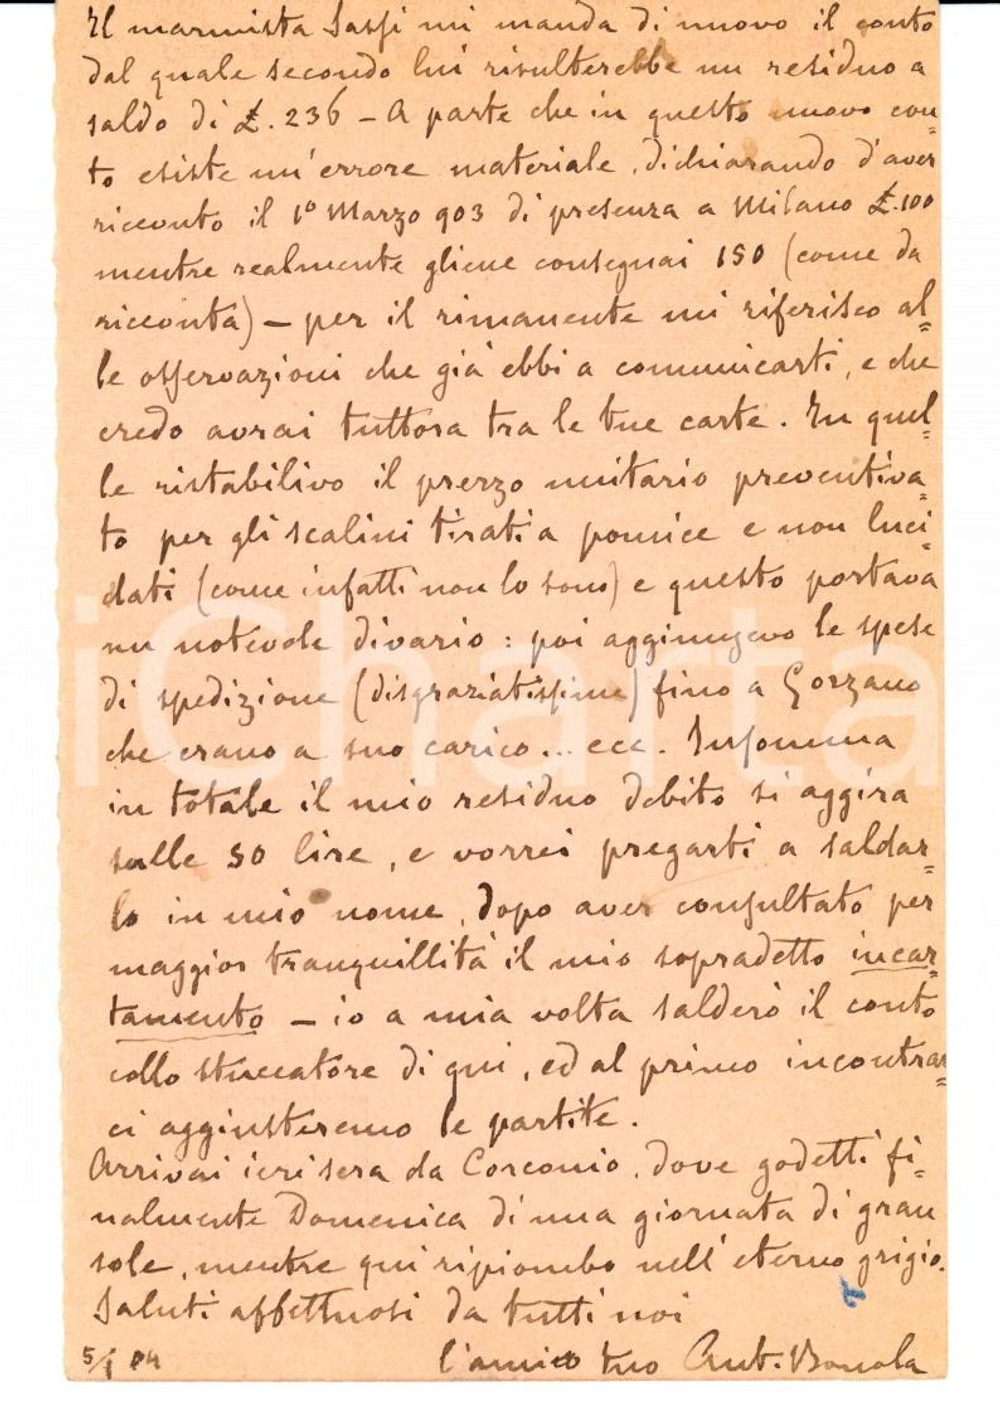 Il marmista Sassi mi manda di nuovo il conto
dal quale secondo lui risulterebbe un residuo a
saldo di £. 236 – A parte che in questo nuovo con=
to esiste un'errore materiale, dichiarando d'aver
ricevuto il 1º Marzo 903 di presenza a Milano £.100
mentre realmente gliene consegnai 150 (come da
ricevuta) – per il rimanente mi riferisco al=
le osservazioni che già ebbi a comunicarti, e che
credo avrai tuttora tra le tue carte. In quel=
le ristabilivo il prezzo unitario preventiva=
to per gli scalini tirati a pomice e non luci=
dati (come infatti non lo sono) e questo portava
un notevole divario: poi aggiungevo le spese
di spedizione (disgraziatissime) fino a Gorzano
che erano a suo carico... ecc. Insomma
in totale il mio residuo debito si aggira
sulle 50 lire, e vorrei pregarti a saldar=
lo in mio nome, dopo aver consultato per
maggior tranquillità il mio sopradetto incar=
tamento – io a mia volta salderò il conto
collo stuccatore di qui, ed al primo incontrar=
ci aggiusteremo le partite.
Arrivai ieri sera da Corconio, dove godetti fi=
nalmente Domenica di una giornata di gran
sole, mentre qui ripiombo nell'eterno grigio.
Saluti affettuosi da tutti noi
5/1 04 l'amico tuo Ant. Bonola
iCharta